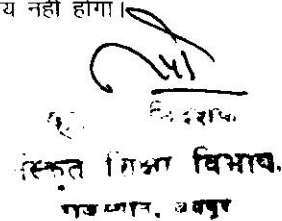 य नही होगा।
निदेशक
संस्कृत शिक्षा विभाग,
राजस्थान, जयपुर